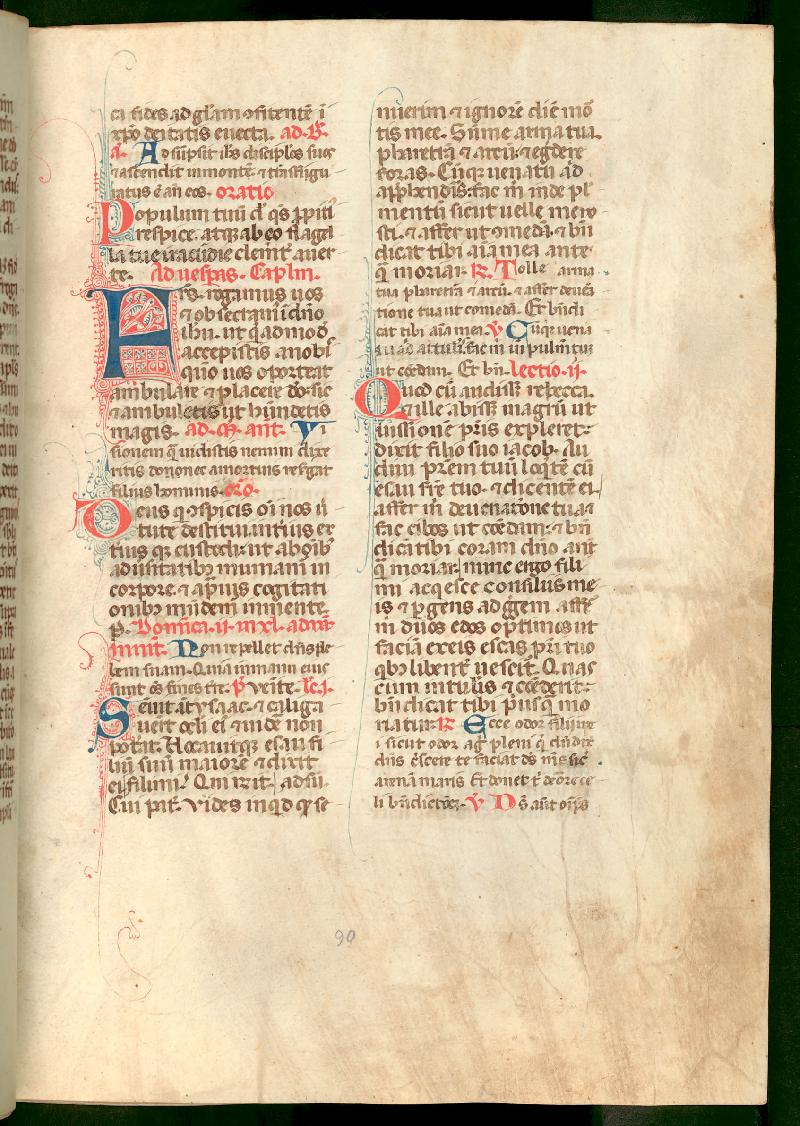 ca fides ad gl̃am ꝯfitentẽ i
xp̃o deitatis euecta. ad. B̃.
a. Adsũpsit ih̃s discipl̃os suos
⁊ ascendit in montẽ ⁊ trñsfigu
ratus ẽ añ eos. oratio
Populum tuũ dẽ q̃s ꝓpiti
respice. atqꝫ ab eo flagel
la tue iracũdie clemẽt̃ auer
te. Ad uesp̃as. Cap̃lm.
Frs̃. rogamus uos
⁊ obsecramꝰ ĩ dño
ih̃u. ut q̃admodũ
accepistis a nobĩ
quo uos oporteat
ambulare ⁊ placere dõ. sic
⁊ ambuletis ut hũndetis
magis. ad. m̃. ant. Vi
sionem q̃ uidistis nemini dixe
ritis donec a mortuis resũgat
filius hominis. orõ.
Deus q ꝯspicis oĩ nos ũ
tute destitui. intiuis ex
tiusqꝫ custodi. ut ab oĩbꝰ
aduersitatibꝰ muniamur in
corpore. ⁊ a prauis cogitati
onibꝰ mũdem̃ in mente
p̃. Domĩca. ii. in xl. ad
inuit̃. Non repellet dñs ple
bem suam. Quia in manu eius
sunt õs fines tr̃e. p̃. Venite. lc̃. i.
Senuit aũt ysaac. ⁊ caliga
uerũt ocl̃i eiꝰ ⁊ uidẽ non
potãt. Uocauitqꝫ esau fi
liũ suũ maiorẽ ⁊ dixit
ei. fili mi. Qui r̃ñit. adsũ.
Cui pat̃. Vides inq̃d q se
nuerim ⁊ ignorẽ diẽ mo
tis mee. Sume arma tua.
pharetrã ⁊ arcũ. ⁊ egdere
foras. Cũqꝫ uenatũ ad
app̃hendis̃. fac m̃ inde pl̃
mentũ sicut uelle me no
sti. ⁊ affer ut ꝯmedã. ⁊ bñ
dicat tibi aĩa mea ante
q̃ moriar. R̃. Tolle arma
tua pharetrã ⁊ arcũ. ⁊ affer deuẽa
tione tua ut comedã. Et bñdi
cat tibi aĩa mea. V̄ Cũqꝫ uena
tu aĩd attul̃is. fac m̃ in pulm̃tũ
ut ꝯedam. Et bñ. Lectio. ii.
Quod cũ audiss̃ rebecca.
⁊ ille abiss̃ in agrũ ut
iussionẽ pr̃is expleret.
dixit filio suo iacob. Au
diui pr̃em tuũ loq̃tẽ cũ
esau fr̃e tuo. ⁊ dicentẽ ei.
affer m̃ de uenatione tua ⁊
fac cibos ut ꝯedam. ⁊ bñ
dicã tibi coram dño añt
q̃ moriar. nunc ergo fili
mi acq̃esce consiliis me
is ⁊ p̃gens ad g̃gem affẽ
m̃ duos edos optimos ut
faciã ex eis escas pr̃i tuo
qbꝰ libent̃ uescit̃. Q̃uas
cum intulis̃ ⁊ ꝯedeit.
bñdicat tibi p̃usq̃ mo
riatur. R̃. Ecce odor filii mei
i sicut odor ag̃ pleni q̃ bñdix̃
dñs c̃scere te faciat d̃s mẽ sic̃
arenã maris Et donet t̃ de rore ce
li bñdictõẽ. V̄ Ds̃ aut õips̃
90